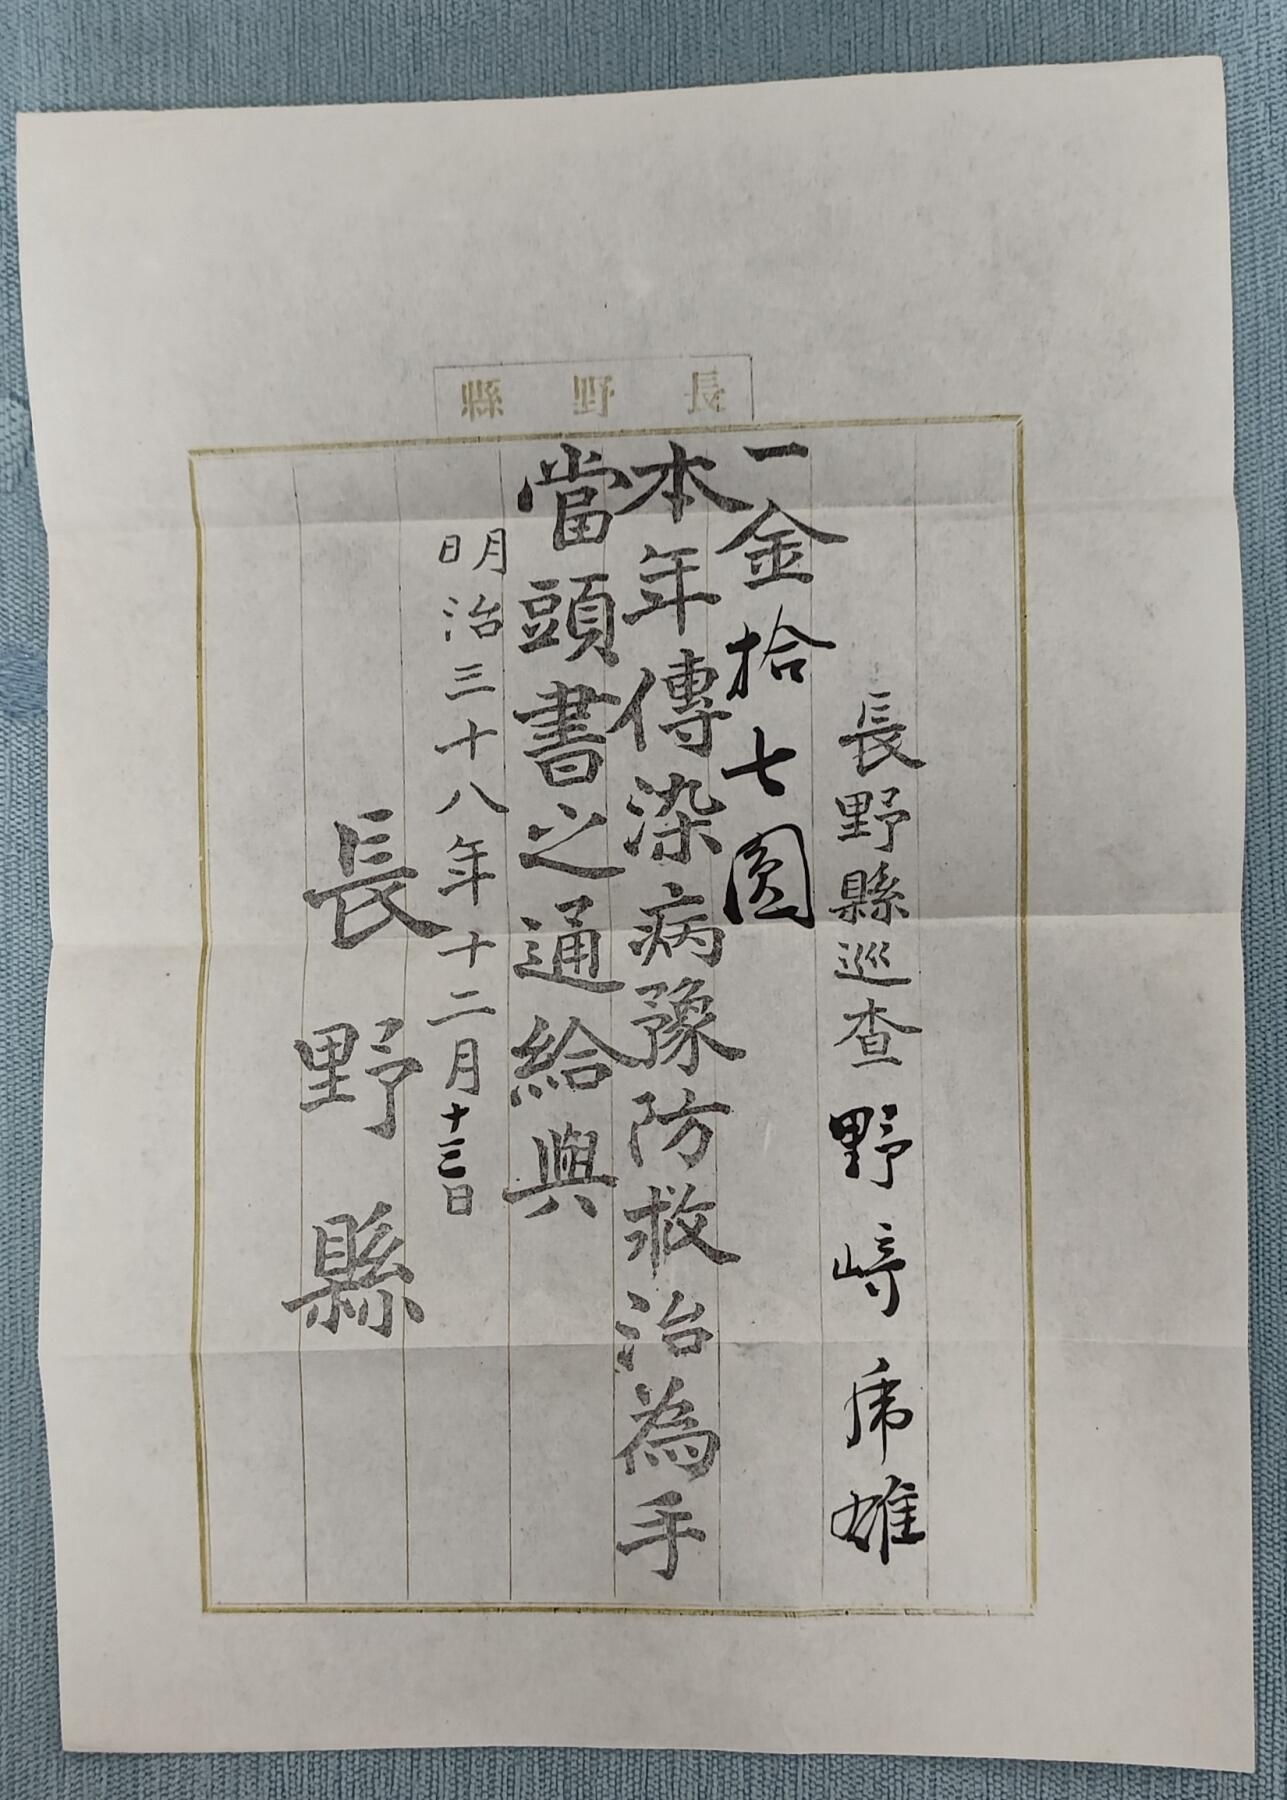 長野縣
長野縣巡査 野﨑乕雄
一金拾七圓
本年傳染病豫防救治為手
當頭書之通給與
明治三十八年十二月十三日
長野縣